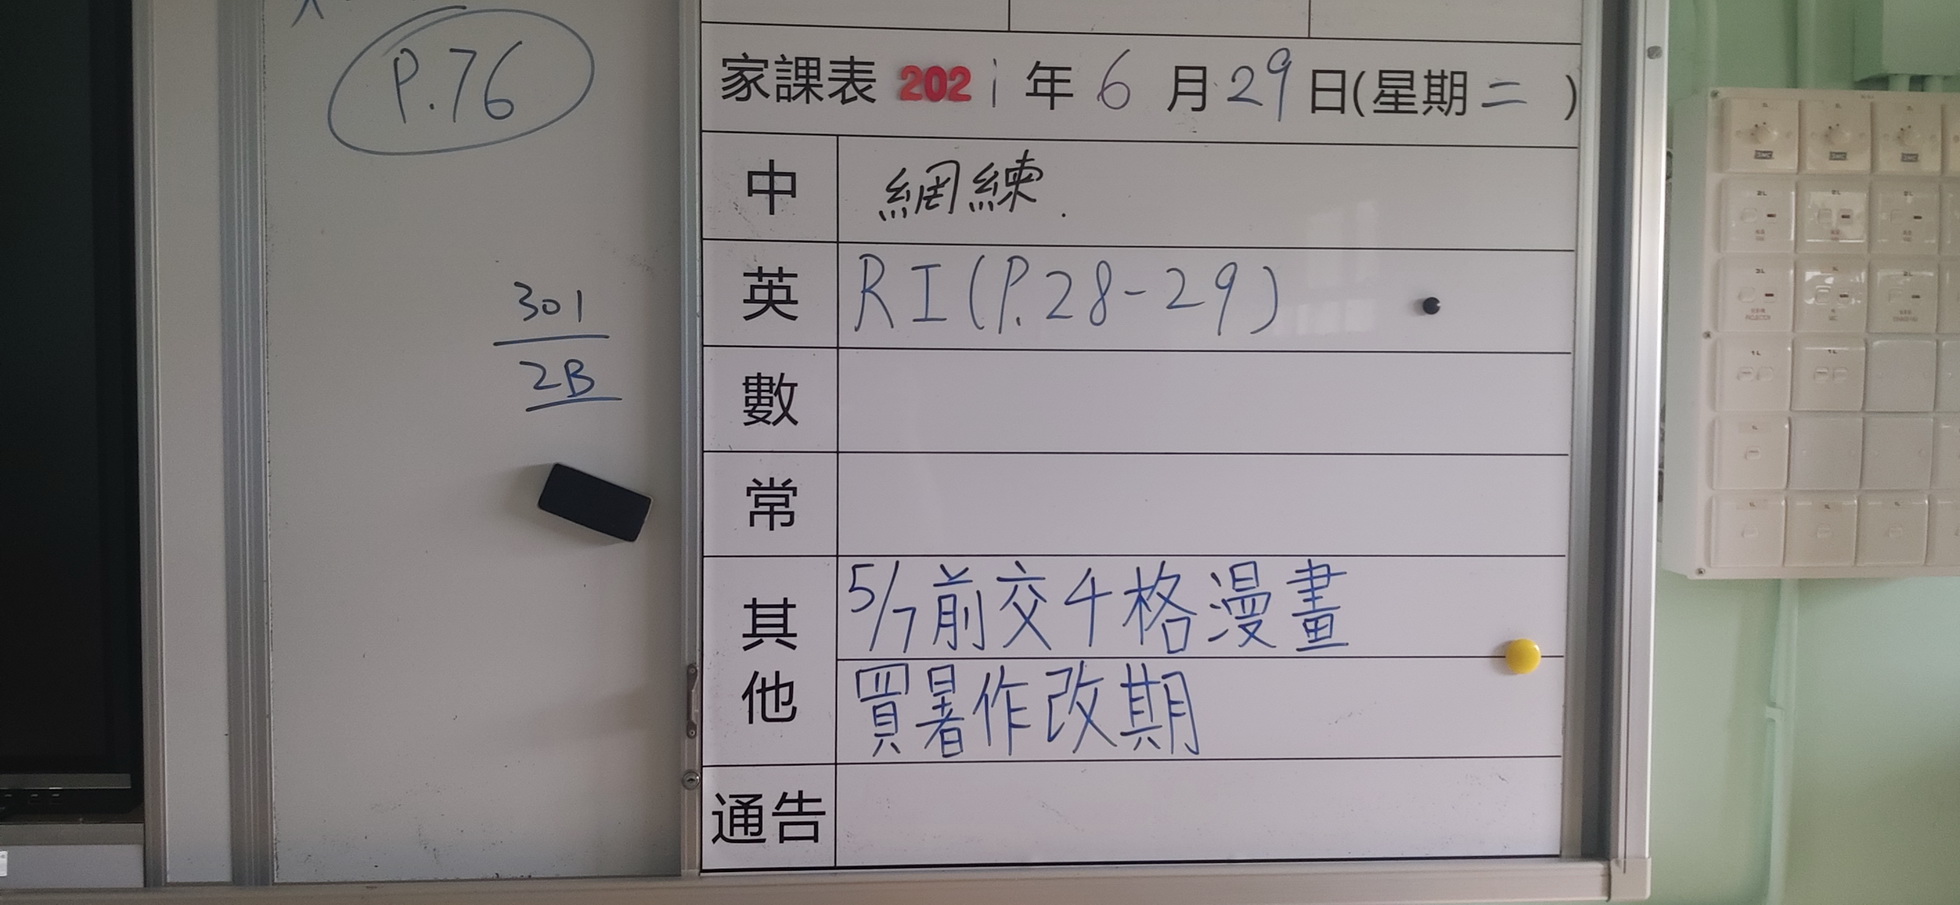 P.76
301
2B
家課表 2021年6月29日(星期二)
中 網練.
英 RI(P.28-29)
數
常
其他 5/7前交千格漫畫
買暑作改期
通告